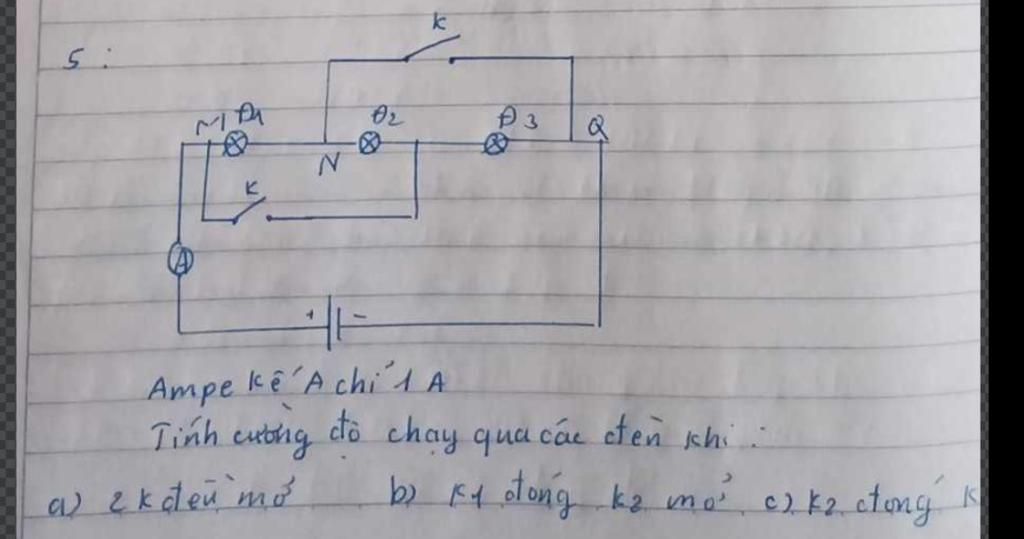 5 :
K
M Đ1 Đ2 Đ3 Q
N
K
A
+ -
Ampe kế A chỉ 1 A
Tính cường độ chạy qua các đèn khi :
a) 2 k đều mở b) K1 đóng K2 mở c) K2 đóng K